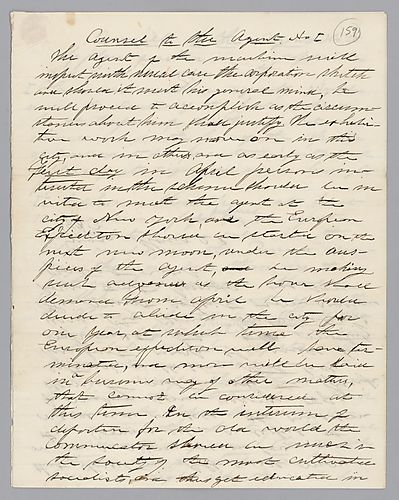 Counsel to the Agent No I
159
The Agent of the machine will
inspect with usual care the corporation sketch
and should it meet his general mind, he
will proceed to accomplish as the circum-
stances about him shall justify. The exhibi-
tion work may move on in this
city, and in others, and as early as the
first day in April persons in-
terested in the scheme should be in-
vited to meet the agent at the
city of New York, and the European
Expedition should be started on the
next new moon, under the aus-
pices of the agent, he making
such advances as the hour shall
demand. From April he should
decide to abide in the city for
one year, at which time the
European expedition will have ter-
minated, and more will be said
in a business way of other matters,
that cannot be considered at
this time. In the interim of
departure for the old world the
Communicator should be much in
the society of the most cultivated
socialists, and thus get educated in